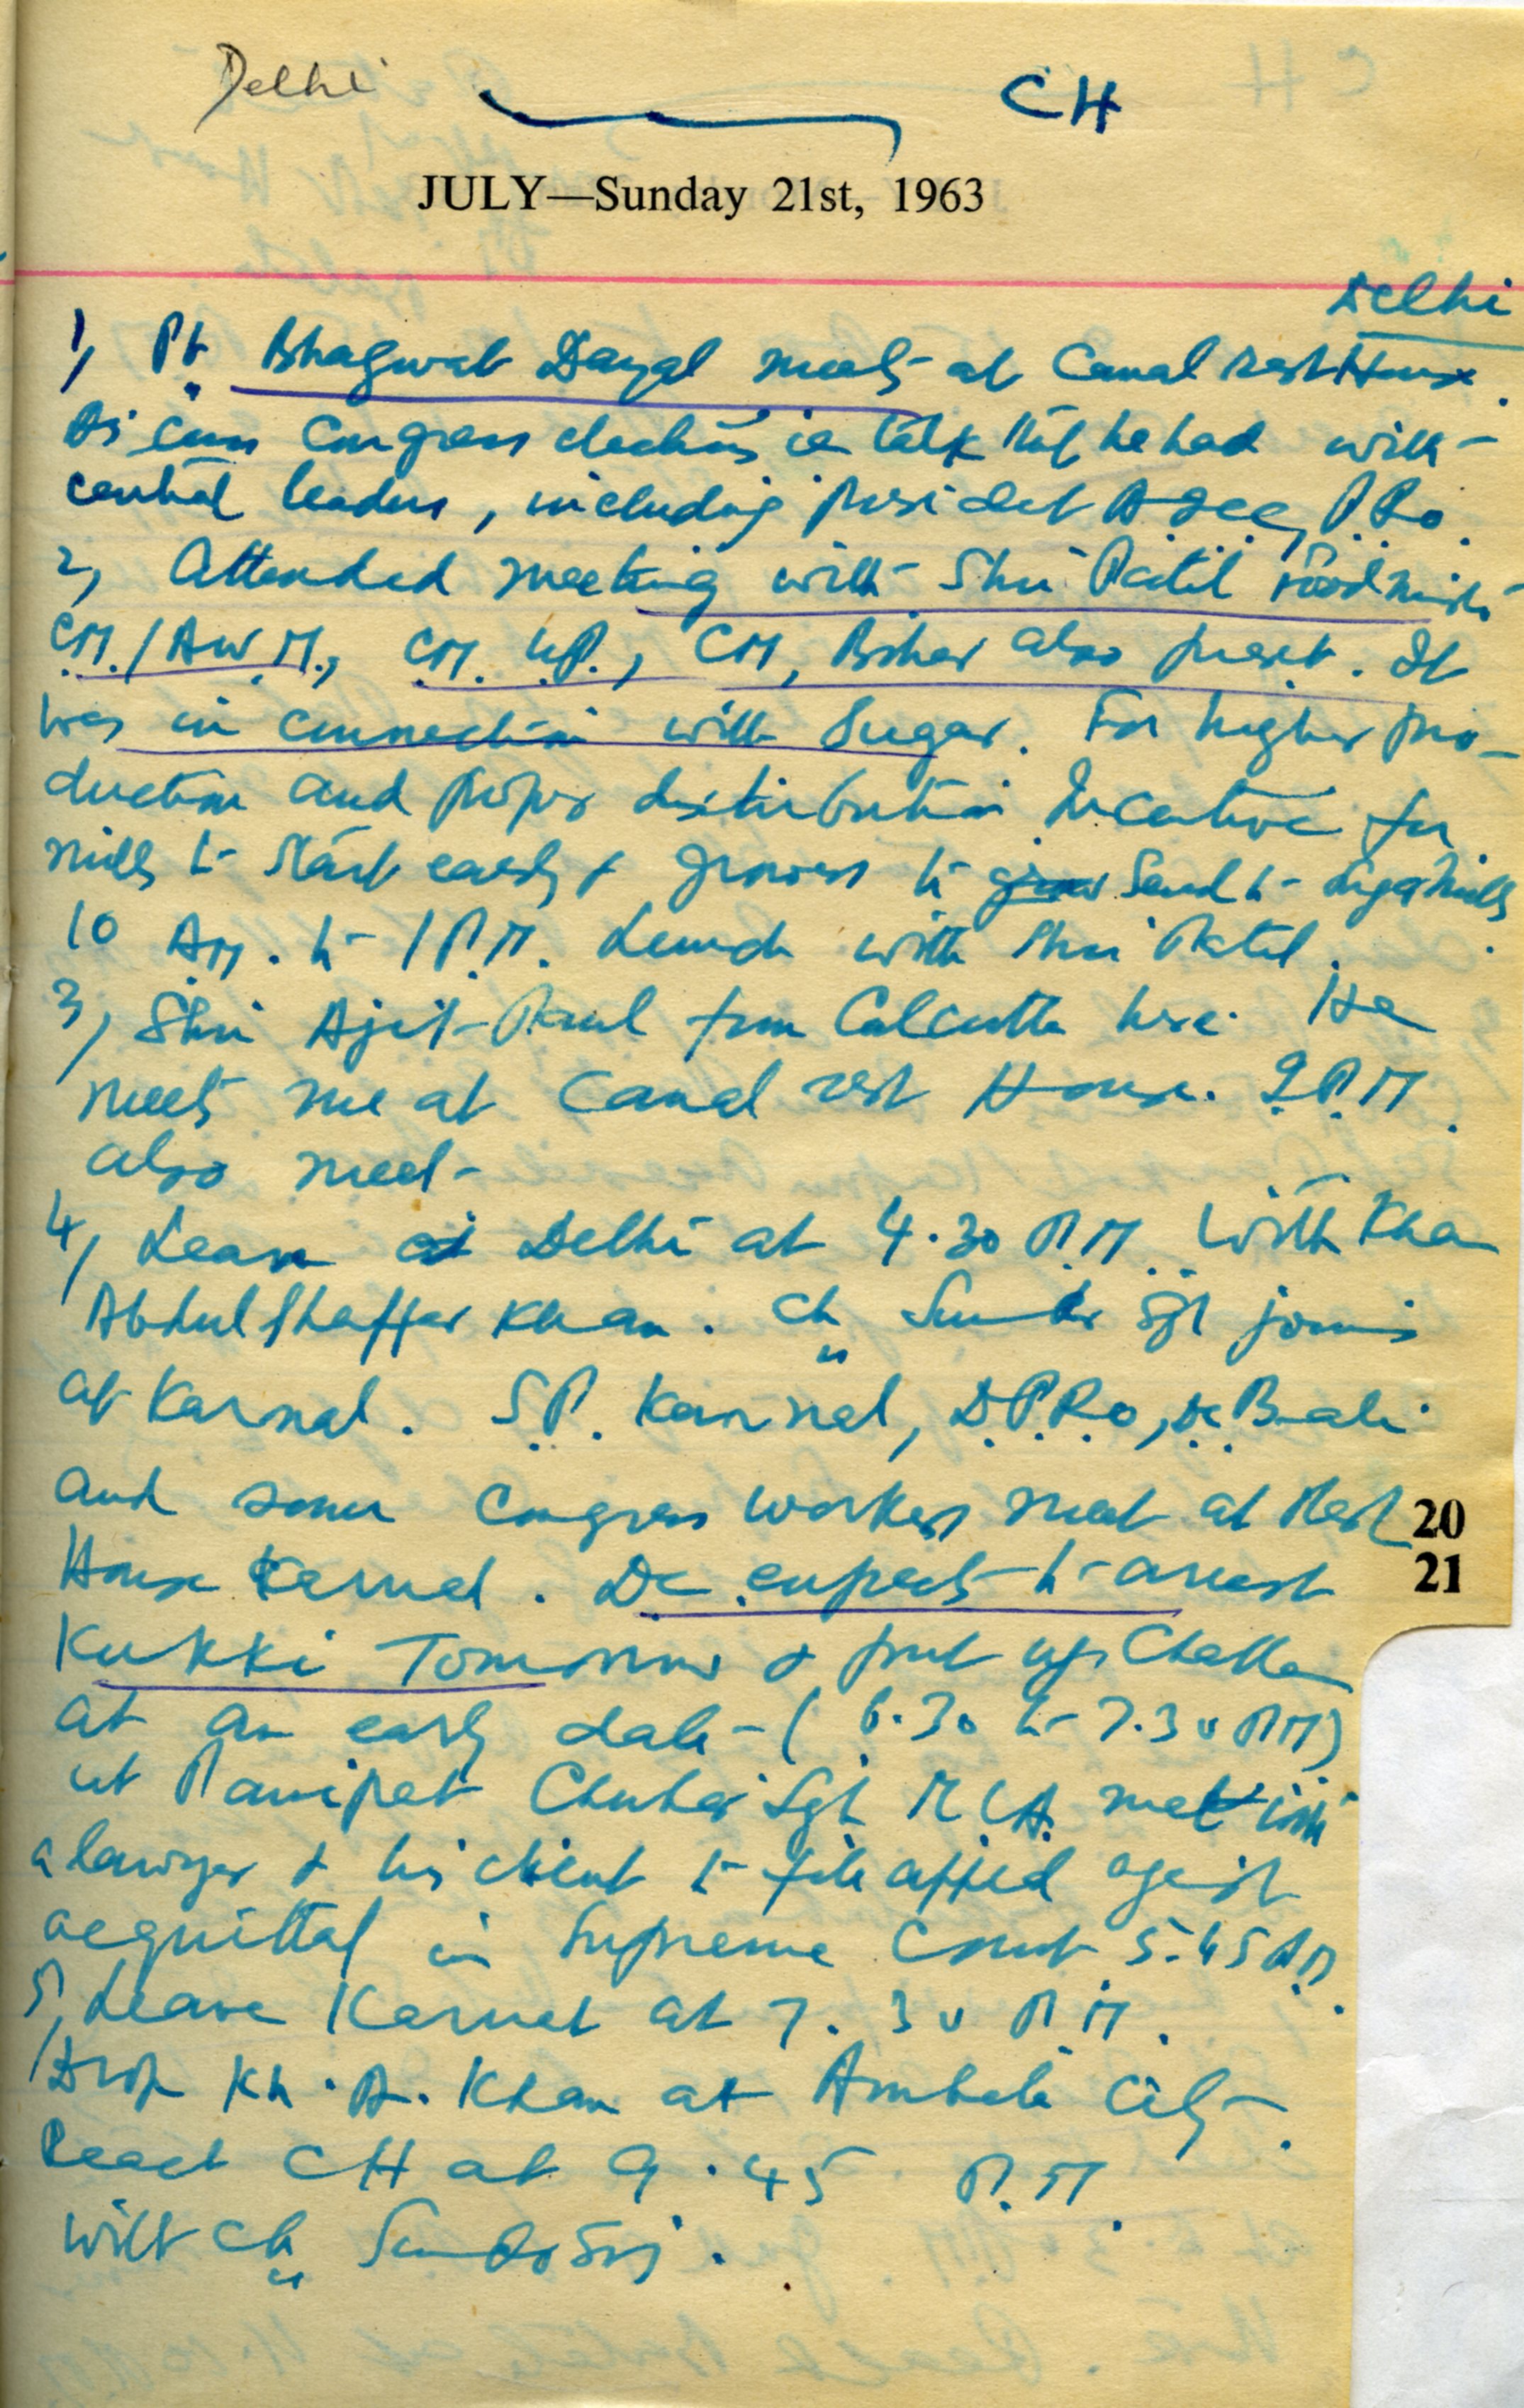 Delhi CH
JULY—Sunday 21st, 1963
Delhi
1, Pt Bhagwat Dayal meets at Canal rest House.
Discuss Congress elections ie talk that he had with
central leaders, including president
2, Attended meeting with Shri Patil Food Minister
CM./ CM. UP., CM, Bihar also present. It
was in connection with Sugar. For higher pro-
duction and proper distribution Incentive for
mills to start early & growers to send to sugar mills
10 AM. to 1 P.M. Lunch with Shri Patil.
3, Shri Ajit from Calcutta here. He
meets me at Canal rest House. P.M.
also meet
4, Leave Delhi at 4.30 P.M. with Khan
Abdul Ghaffar Khan. Ch Sunder Sgh joins
at Karnal. S.P. Karnal, D.P.R.o, Dc
and some Congress workers meet at Rest
House Karnal. Dc. expects to arrest
Kukki Tomorrow & put up Challan
at an early date - (6.30 to 7.30 PM)
at Panipat Sgh M.L.A. met with
a lawyer & his client to file appeal against
acquittal in Supreme Court 5.45
5, Leave Karnal at 7.30 P.M.
Drop Kh. A. Khan at Ambala City.
Reach CH at 9.45 P.M.
with Ch
20
21